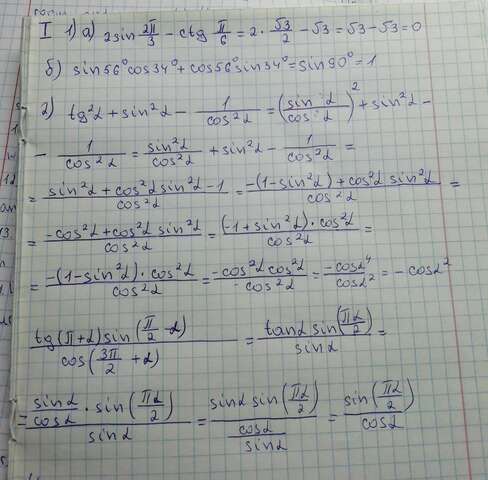 I 1) а) 2sin 2π/3 - ctg π/6 = 2 · √3/2 - √3 = √3 - √3 = 0
б) sin56°cos34° + cos56°sin34° = sin90° = 1
2) tg²α + sin²α - 1/cos²α = (sin α/cos α)² + sin²α -
- 1/cos²α = sin²α/cos²α + sin²α - 1/cos²α =
= (sin²α + cos²α sin²α - 1)/cos²α = (-(1 - sin²α) + cos²α sin²α)/cos²α =
= (-cos²α + cos²α sin²α)/cos²α = ((-1 + sin²α) · cos²α)/cos²α =
= (-(1 - sin²α) · cos²α)/cos²α = (-cos²α cos²α)/cos²α = -cosα⁴/cosα² = -cosα²
(tg(π + α) sin(π/2 - α))/cos(3π/2 + α) = (tanα sin(πα/2))/sinα =
= (sinα/cosα · sin(πα/2))/sinα = (sinα sin(πα/2))/(cosα/sinα) = sin(πα/2)/cosα